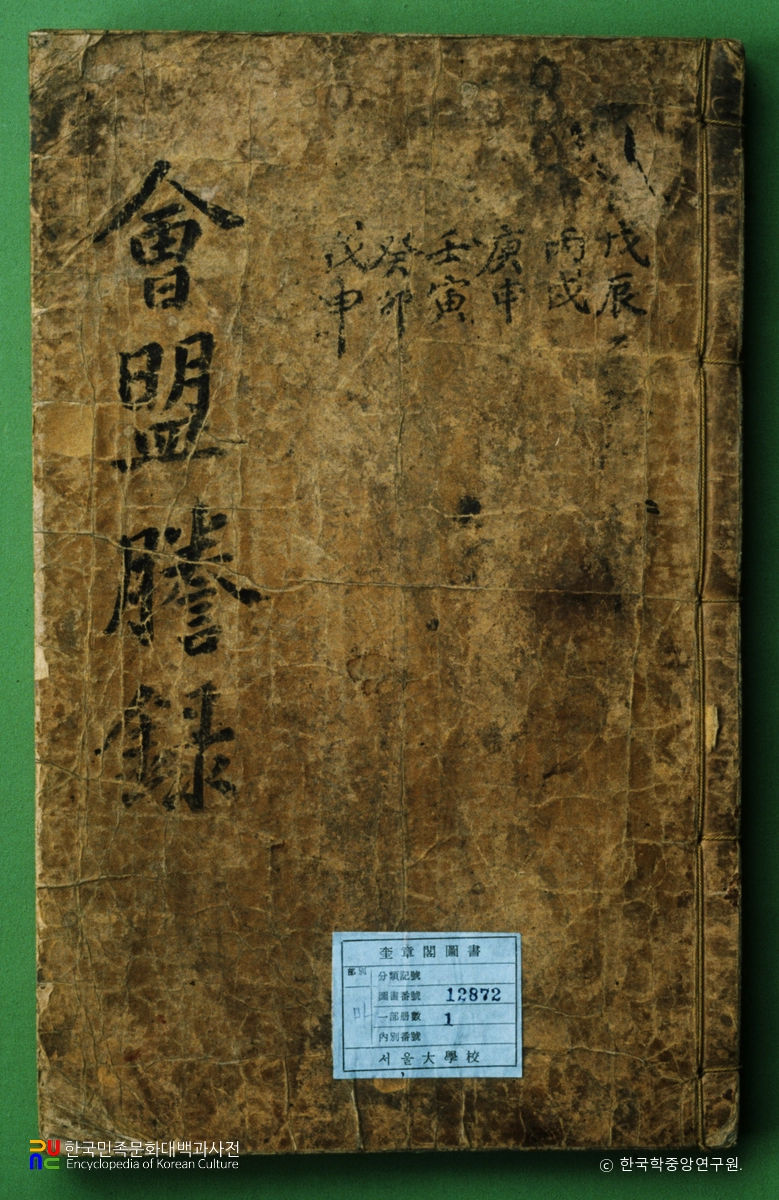 會盟謄録
戊辰
丙戌
庚申
壬寅
癸卯
戊申
奎章閣圖書
部別
分類記號
圖書番號 12872
一部冊數 1
內別番號
서울大學校
한국민족문화대백과사전
Encyclopedia of Korean Culture
ⓒ 한국학중앙연구원.